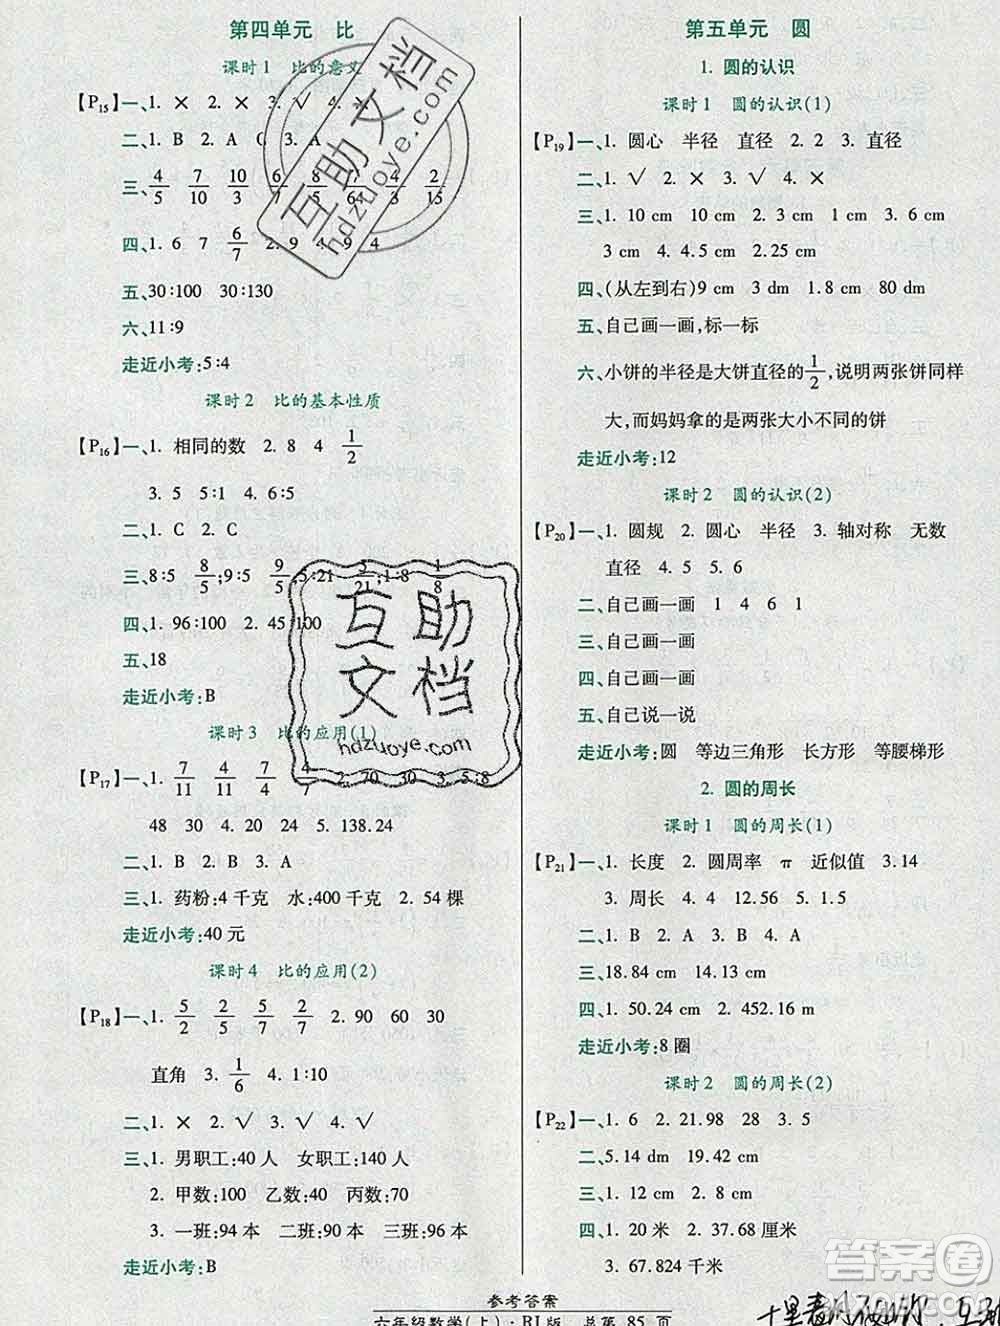 第四单元 比
课时1 比的意义
【P15】一、1. × 2. × 3. √ 4. ×
二、1. B 2. A C 3. A
三、4/5 7/10 10/3 7/5 4/2 2/15
四、1. 6 7 6/7 2. 9 4 9 4
五、30∶100 30∶130
六、11∶9
走近小考:5∶4
课时2 比的基本性质
【P16】一、1. 相同的数 2. 8 4 1/2
3. 5 5∶1 4. 6∶5
二、1. C 2. C
三、8∶5 8/5;9∶5 9/5;5∶21 5/21;1∶8 1/8
四、1. 96∶100 2. 45∶100
五、18
走近小考:B
课时3 比的应用(1)
【P17】一、1. 7/11 4/11 7/4 4/7 2. 70 30 3. 5∶8
48 30 4. 20 24 5. 138.24
二、1. B 2. B 3. A
三、1. 药粉:4千克 水:400千克 2. 54棵
走近小考:40元
课时4 比的应用(2)
【P18】一、1. 5/2 2/5 5/7 2/7 2. 90 60 30
直角 3. 1/6 4. 1∶10
二、1. × 2. √ 3. √ 4. √
三、1. 男职工:40人 女职工:40人
2. 甲数:100 乙数:40 丙数:70
3. 一班:94本 二班:90本 三班:96本
走近小考:B
第五单元 圆
1. 圆的认识
课时1 圆的认识(1)
【P19】一、1. 圆心 半径 直径 2. 2 3. 直径
二、1. √ 2. × 3. √ 4. ×
三、1. 10 cm 10 cm 2. 3 cm 3. 6 cm
3 cm 4. 4.5 cm 2.25 cm
四、(从左到右)9 cm 3 dm 1.8 cm 80 dm
五、自己画一画,标一标
六、小饼的半径是大饼直径的1/2,说明两张饼同样
大,而妈妈拿的是两张大小不同的饼
走近小考:12
课时2 圆的认识(2)
【P20】一、1. 圆规 2. 圆心 半径 3. 轴对称 无数
直径 4. 5 5. 4
二、自己画一画 1 4 6 1
三、自己画一画
四、自己画一画
五、自己说一说
走近小考:圆 等边三角形 长方形 等腰梯形
2. 圆的周长
课时1 圆的周长(1)
【P21】一、1. 长度 2. 圆周率 π 近似值 3.14
3. 周长 4. 4 12.56 5. 1.5
二、1. B 2. A 3. B 4. A
三、18.84 cm 14.915 cm
四、1. 50.24 cm 2. 452.16 m
走近小考:8圈
课时2 圆的周长(2)
【P22】一、1. 6 2. 21.98 28 3. 5
二、5.14 dm 19.42 cm
三、1. 12 cm 2. 4 cm
四、1. 20米 2. 37.68厘米
3. 67.824千米
参考答案
六年级数学(上)·RJ版 总第 85 页
互助文档
hdzuoye.com
互助
文档
hdzuoye.com
答案圈